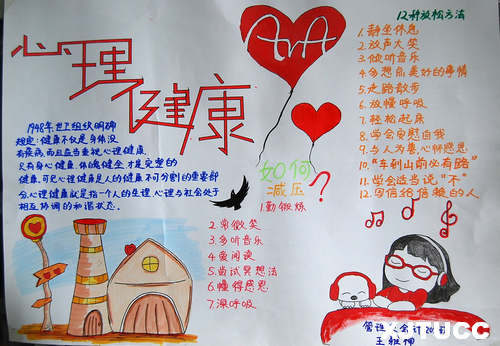 心理健康
ArA
1948年世卫组织明确
规定:健康不仅是身体没
有疾病,而且应当重视心理健康,
只有身心健康、体魄健全才是完整的
健康,可见心理健康是人的健康不可分割的重要部
分.心理健康就是指一个人的生理、心理与社会处于
相互协调的和谐状态.
如何
减压?
1.勤锻炼
2.常微笑
3.多听音乐
4.爱阅读
5.尝试冥想法
6.懂得感恩
7.深呼吸
12种放松方法
1.静坐休息
2.放声大笑
3.倾听音乐
4.多想点美好的事情
5.走路散步
6.放慢呼吸
7.轻松起床
8.学会安慰自我
9.与人为善,心怀感恩
10."车到山前必有路"
11.学会适当说"不"
12.写信给信赖的人
TUCC